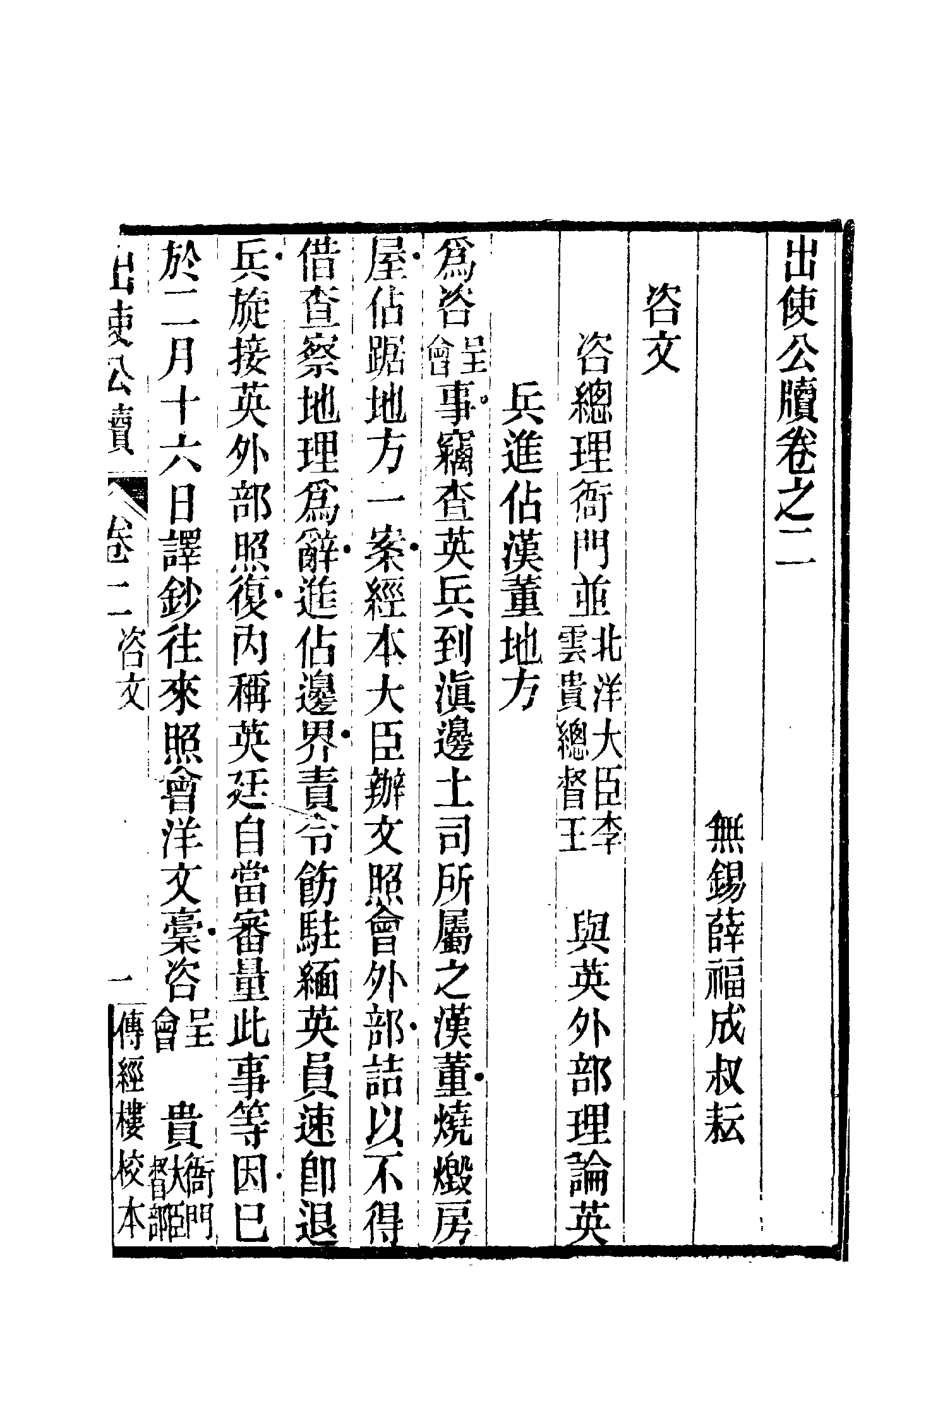 出使公牘卷之二
無錫薛福成叔耘
咨文
咨總理衙門並北洋大臣李雲貴總督王 與英外部理論英
兵進佔漢董地方
爲咨呈會事。竊查英兵到滇邊土司所屬之漢董燒燬房
屋佔踞地方一案經本大臣辦文照會外部詰以不得
借查察地理爲辭進佔邊界責令飭駐緬英員速卽退
兵旋接英外部照復內稱英廷自當審量此事等因已
於二月十六日譯鈔往來照會洋文稾咨呈會 貴衙門大臣督部
出使公牘 卷二 咨文 一 傳經樓校本